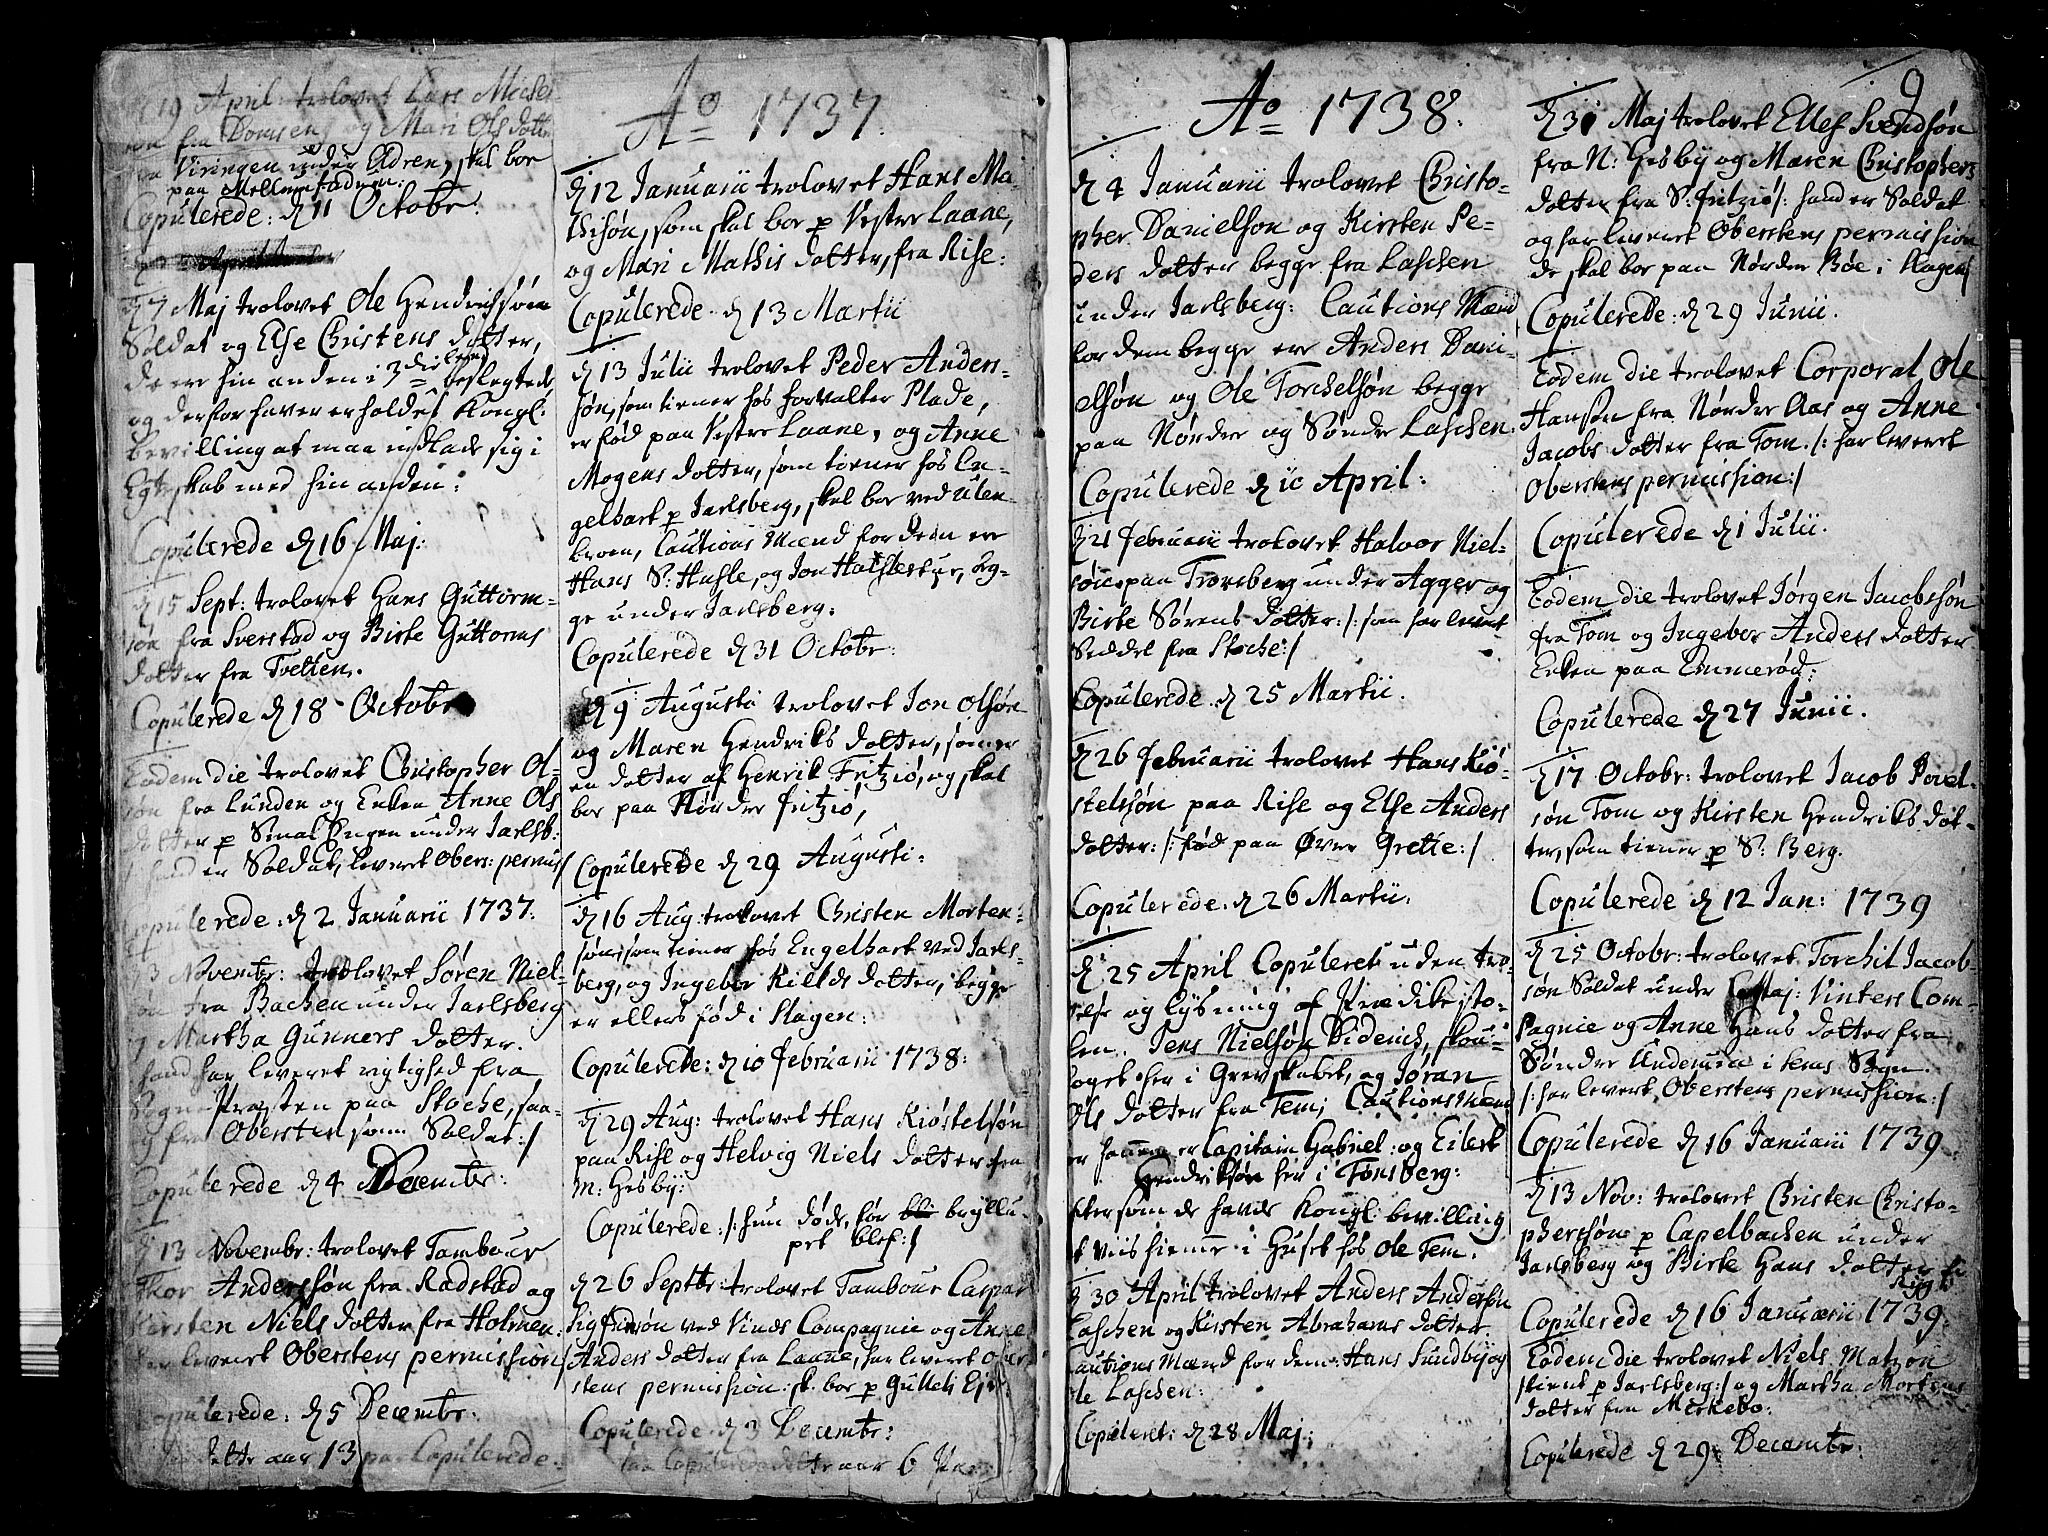 19 April: trolovet Lars Michel-
søn fra Domsen og Mari Ols dotter
fra Viringen under Adren, skal boe
paa Mellom
Copulerede: d 11 Octobr.
d 7 Maj trolovet Ole Hendrichsøn
Soldat og Else Christens dotter,
de ere hin anden i 3die leed beslegtede
og derfor haver erholdet Kongl:
bevilling at maa indlade sig i
Egteskab med hin anden:
Copulerede d 16 Maj:
d 15 Sept: trolovet Hans Guttorm-
søn fra Sverstad og Birte Guttorms
dotter fra Tvetten.
Copulerede d 18 Octobr
Eodem die trolovet Christopher Ol-
søn fra Lunden og Enken Anne Ols
dotter p Smal Engen under Jarlsb:
hand er Soldat, leveret Obers: permis/
Copulerede: d 2 Januarii 1737.
d 3 Novembr: trolovet Søren Niel-
søn fra Bachen under Jarlsberg
og Martha Gunners dotter.
hand har leveret rigtighed fra
Sogne Præsten paa Stoche, saa-
og fra Obersten som Soldat:/
Copulerede d 4 Decembr:
d 13 Novembr: trolovet Tambour
Thor Andersøn fra Radstad og
Kirsten Niels dotter fra Holmen:
har leveret Oberstens permission/
Copulerede: d 5 Decembr:
dette aar 13 par Copulerede.
Ao 1737.
d 12 Januarii trolovet Hans Ma-
thisøn, som skal boe p Vestre Laane,
og Mari Mathis dotter, fra Rise:
Copulerede d 13 Martii
d 13 Julii trolovet Peder Anders-
søn, som tiener hos forvalter Plade,
er fød paa Vestre Laane, og Anne
Mogens dotter, som tiener hos En-
gelhart p Jarlsberg, skal boe ved Ulen
broen, Cautions Mænd for dem ere
Hans S: Husle, og Jon Hasle, beg-
ge under Jarlsberg:
Copulerede d 31 Octobr:
d 9 Augusti trolovet Jon Olsøn
og Maren Hendriks dotter, som er
en dotter af Henrik Fritziø, og skal
boe paa Nørdre Fritziø,
Copulerede d 29 Augusti:
d 16 Aug: trolovet Christen Morten-
søn, som tiener hos Engelhart ved Jarls-
berg, og Ingebor Kields dotter, begge
er ellers fød i Slagen:
Copulerede: d 10 Februarii 1738:
d 29 Aug: trolovet Hans Kiøstelsøn
paa Rise og Helvig Niels dotter fra
M: Hesby:
Copulerede: /: hun døde, før bryllu-
pet blef:/
d 26 Septbr: trolovet Tambour Caspar
Sigfridsøn ved Vinds Compagnie og Anne
Anders dotter fra Laane, har leveret Ober-
stens permission: sk. boe p Gulteli Eje:/
Copulerede d 3 Decembr:
Copulerede dette aar 6 Par
Ao 1738.
d 4 Januarii trolovet Christo-
pher Danielsøn og Kirsten Pe-
ders dotter begge fra Laschen
under Jarlsberg: Cautions Mænd
for dem begge ere Anders Dani-
elsøn og Ole Torchelsøn begge
paa Nørdre og Søndre Laschen.
Copulerede d 10 April:
d 21 Februarii trolovet Halvor Niel-
søn paa Tronsberg under Agger og
Birte Sørens dotter: /: som har leveret
Seddel fra Stoche:/
Copulerede d 25 Martii.
d 26 Februarii trolovet Hans Kiø-
stelsøn paa Rise og Else Anders
dotter: /: fød paa Øvre Grette:/
Copulerede: d 26 Martii.
d 25 April Copuleret uden tro-
lofse og lysning af Prædikesto-
len. Jens Nielsøn Diderich, skou-
foget her i Grevskabet, og Jøran
Ols dotter fra Tem; Cautions Mænd
er Capitain Gabriel: og Eilert
Hendriksøn her i Tønsberg:
eftersom de havde Kongl: bevilling
at viis hieme i Huset hos Ole Tem.
d 30 April trolovet Anders Andersøn
Laschen og Kirsten Abrahams dotter.
Cautions Mænd for dem: Hans Sundby og
Ole Laschen:
Copuleret: d 28 Maj:
9
d 31 Maj trolovet Ellef Svendsøn
fra N: Hesby og Maren Christophers
dotter fra S: Fritziø /: hand er Soldat
og har leveret Oberstens permission
de skal boe paa Nørdre Bøe i Slagen/
Copulerede: d 29 Junii.
Eodem die trolovet Corporal Ole
Hansøn fra Nørdre Aas og Anne
Jacobs dotter fra Tom. /: har leveret
Oberstens permission:/
Copulerede d 1 Julii.
Eodem die trolovet Jørgen Jacobsøn
fra Tom og Ingebor Anders dotter
Enken paa Emmerød:
Copulerede d 27 Junii.
d 17 Octobr: trolovet Jacob Povel-
søn Tom og Kirsten Hendriks dot-
ter, som tiener p S: Berg.
Copulerede d 12 Jan: 1739
d 25 Octobr: trolovet Torchil Jacob-
søn Soldat under Maj: Vinters Com-
Pagnie og Anne Hans dotter fra
Søndre i Sems Sogn.
/: har leveret Oberstens permission:/
Copulerede d 16 Januarii 1739.
d 13 Nov: trolovet Christen Christo-
phersøn p Capelbachen under
Jarlsberg og Birte Hans dotter fr
Rygg
Copulerede d 16 Januarii 1739.
Eodem die trolovet Niels Matzøn
tient p Jarlsberg:/ og Martha Mortens
dotter fra Mirkebo:
Copulerede d 29 Decembr: